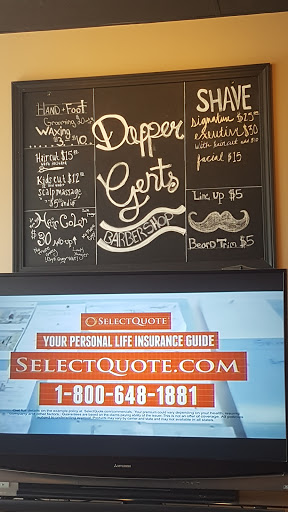 HAND + FOOT
Grooming
WAXING
$10
Haircut $15
Kids cut $12
scalp massage
$5
Hair Color
$30 and up!
Dapper
Gents
BARBERSHOP
SHAVE
signature $25
executive $30
with haircut add $10
facial $15
Line Up $5
Beard Trim $5
SELECTQUOTE
YOUR PERSONAL LIFE INSURANCE GUIDE
SELECTQUOTE.COM
1-800-648-1881
MITSUBISHI